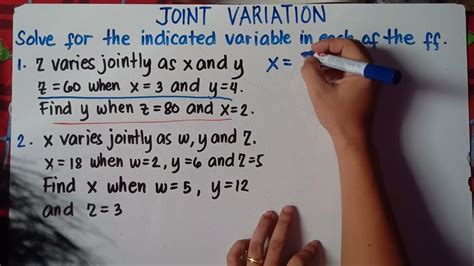 JOINT VARIATION
Solve for the indicated variable in each of the ff.
1. Z varies jointly as x and y
Z = 60 when x = 3 and y = 4.
Find y when Z = 80 and x = 2.
X =
2. X varies jointly as w, y and Z.
X = 18 when w = 2, y = 6 and Z = 5
Find X when w = 5, y = 12
and Z = 3